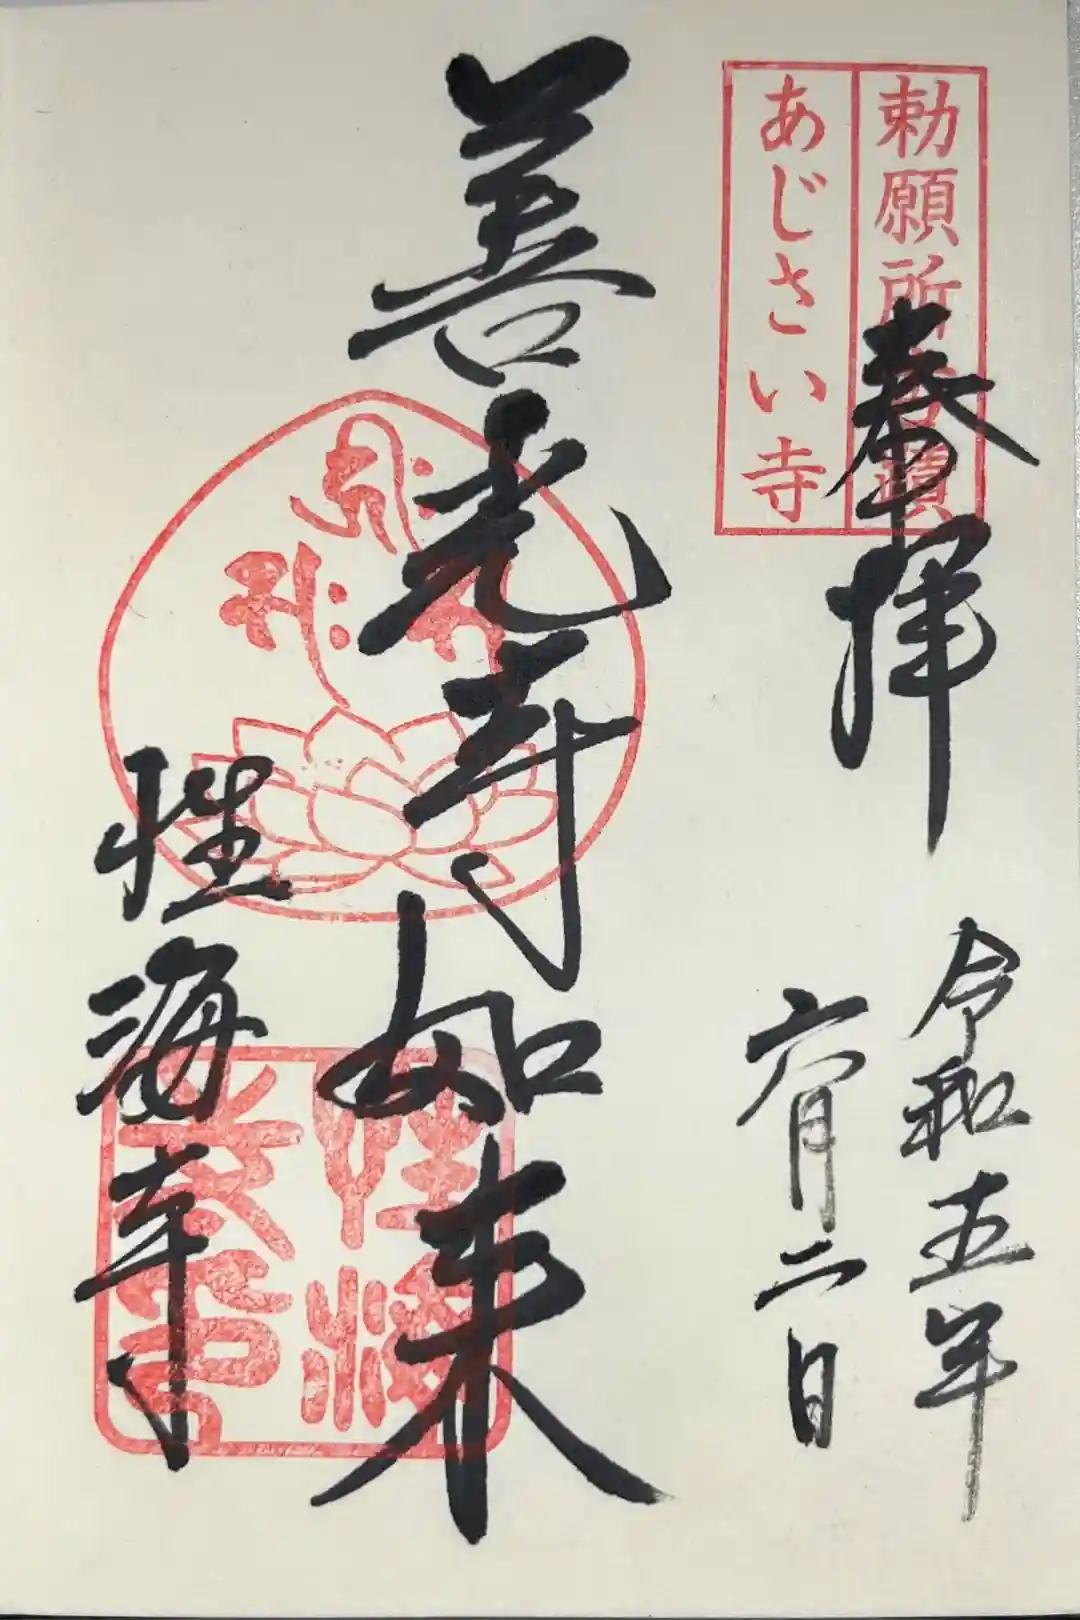 勅願所
あじさい寺
奉拝
令和五年
六月二日
善光寺如来
性海寺
性海